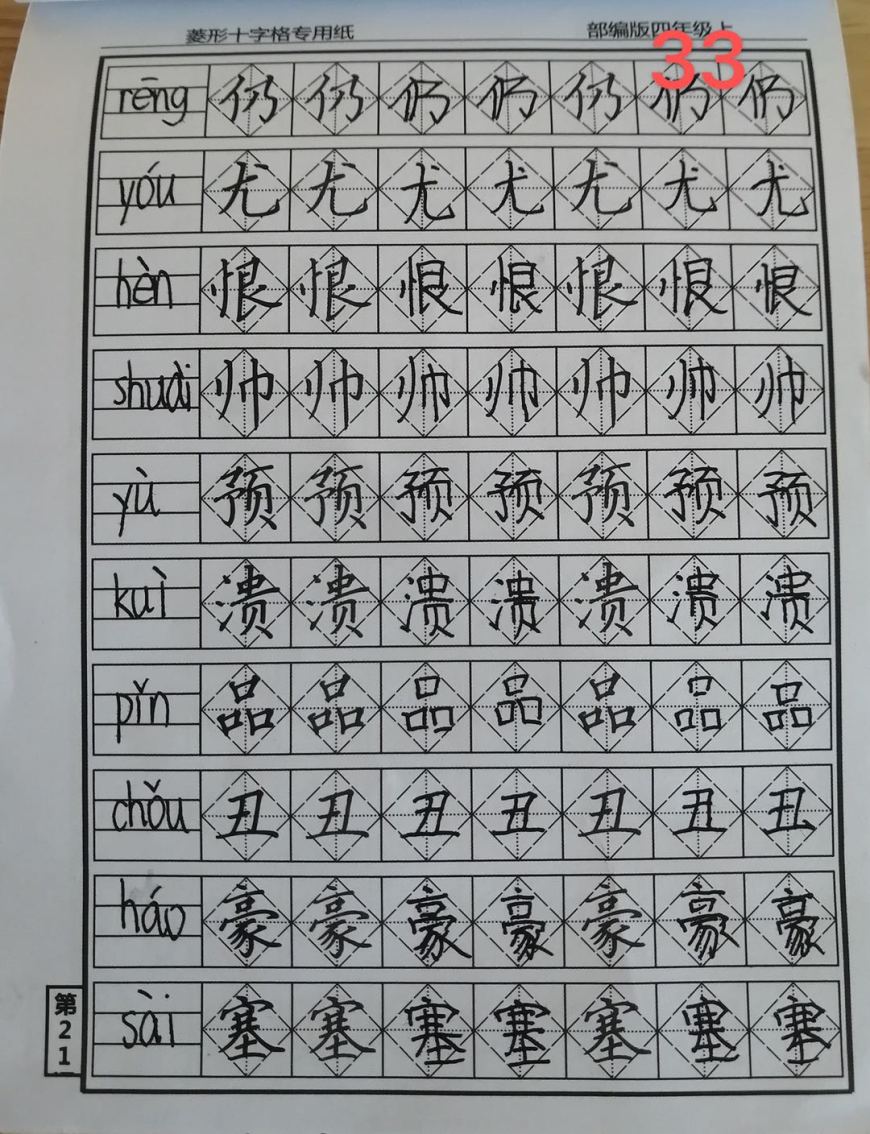 菱形十字格专用纸 部编版四年级上
33
rēng 仍 仍 仍 仍 仍 仍 仍
yóu 尤 尤 尤 尤 尤 尤 尤
hèn 恨 恨 恨 恨 恨 恨 恨
shuài 帅 帅 帅 帅 帅 帅 帅
yù 预 预 预 预 预 预 预
kuì 溃 溃 溃 溃 溃 溃 溃
pǐn 品 品 品 品 品 品 品
chǒu 丑 丑 丑 丑 丑 丑 丑
háo 豪 豪 豪 豪 豪 豪 豪
sài 塞 塞 塞 塞 塞 塞 塞
第21